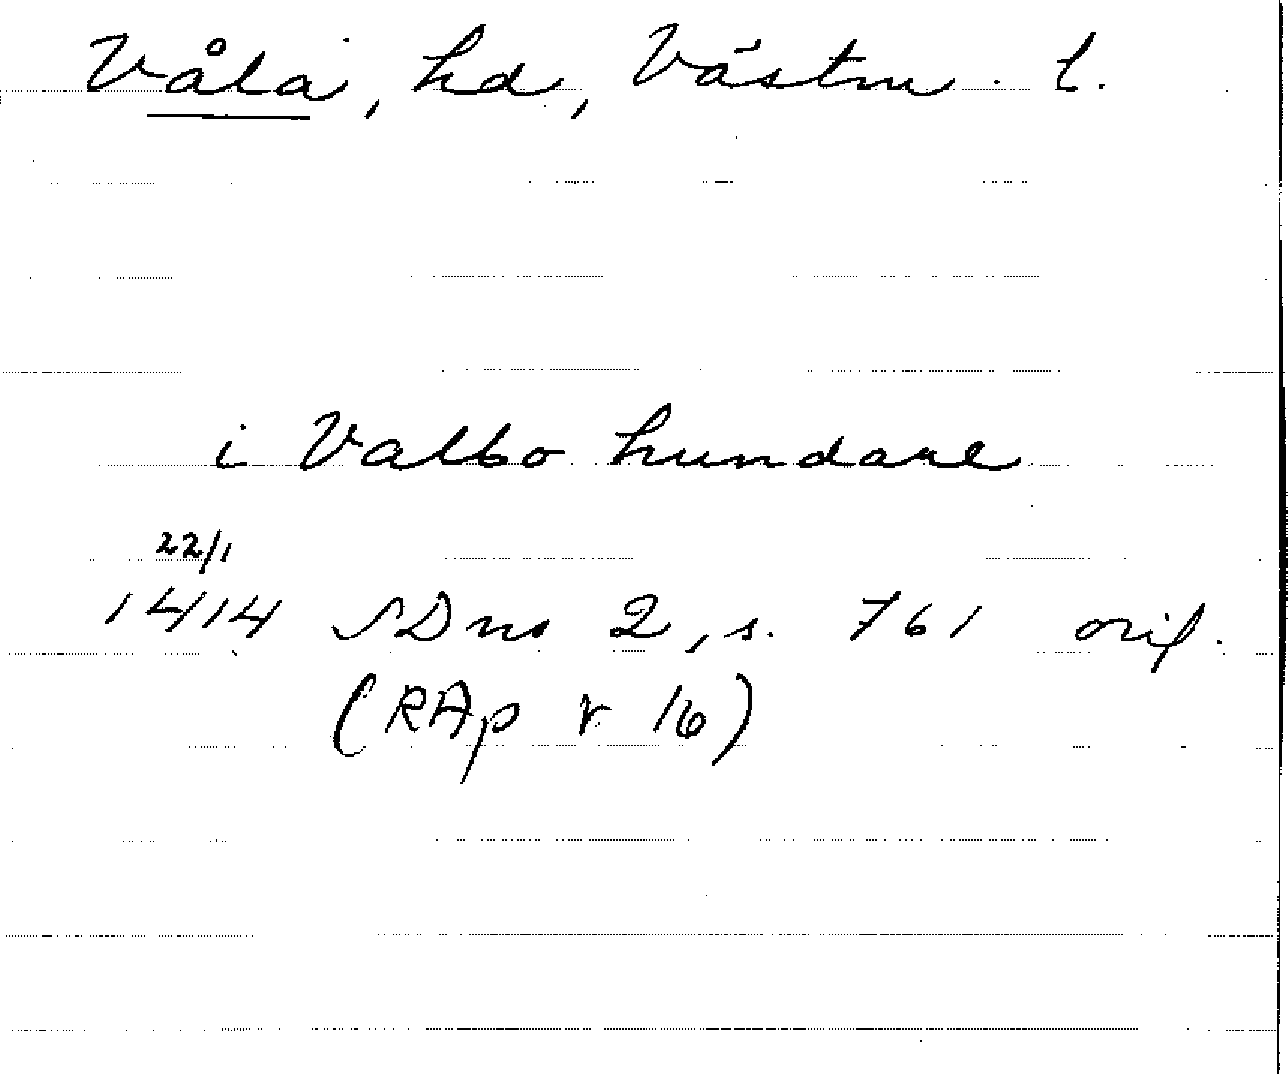 Våla, hd, Västm. l.
i Valbo hundare
22/1
1414 SDns 2, s. 761 orig.
(RAp v 16)